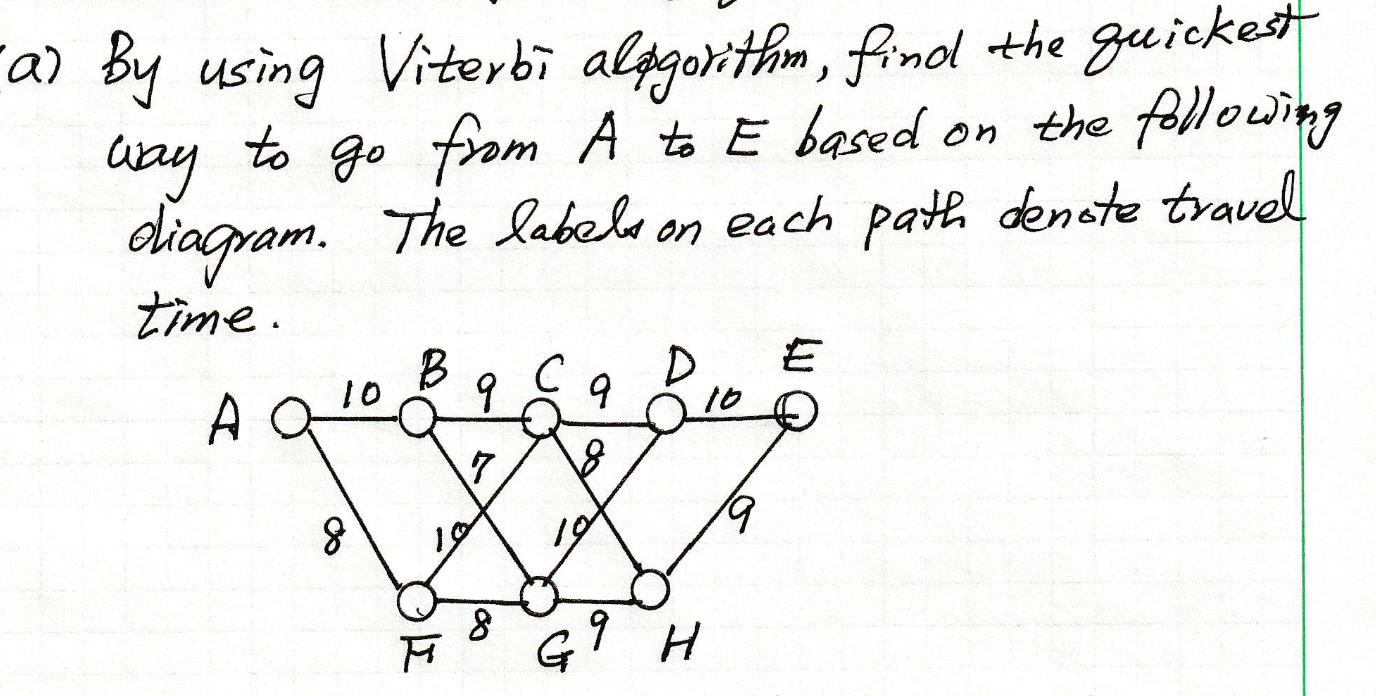 (a) By using Viterbi algorithm, find the quickest
way to go from A to E based on the following
diagram. The labels on each path denote travel
time.
A 10 B 9 C 9 D 10 E
7 8
8 10 10 9
F 8 G 9 H